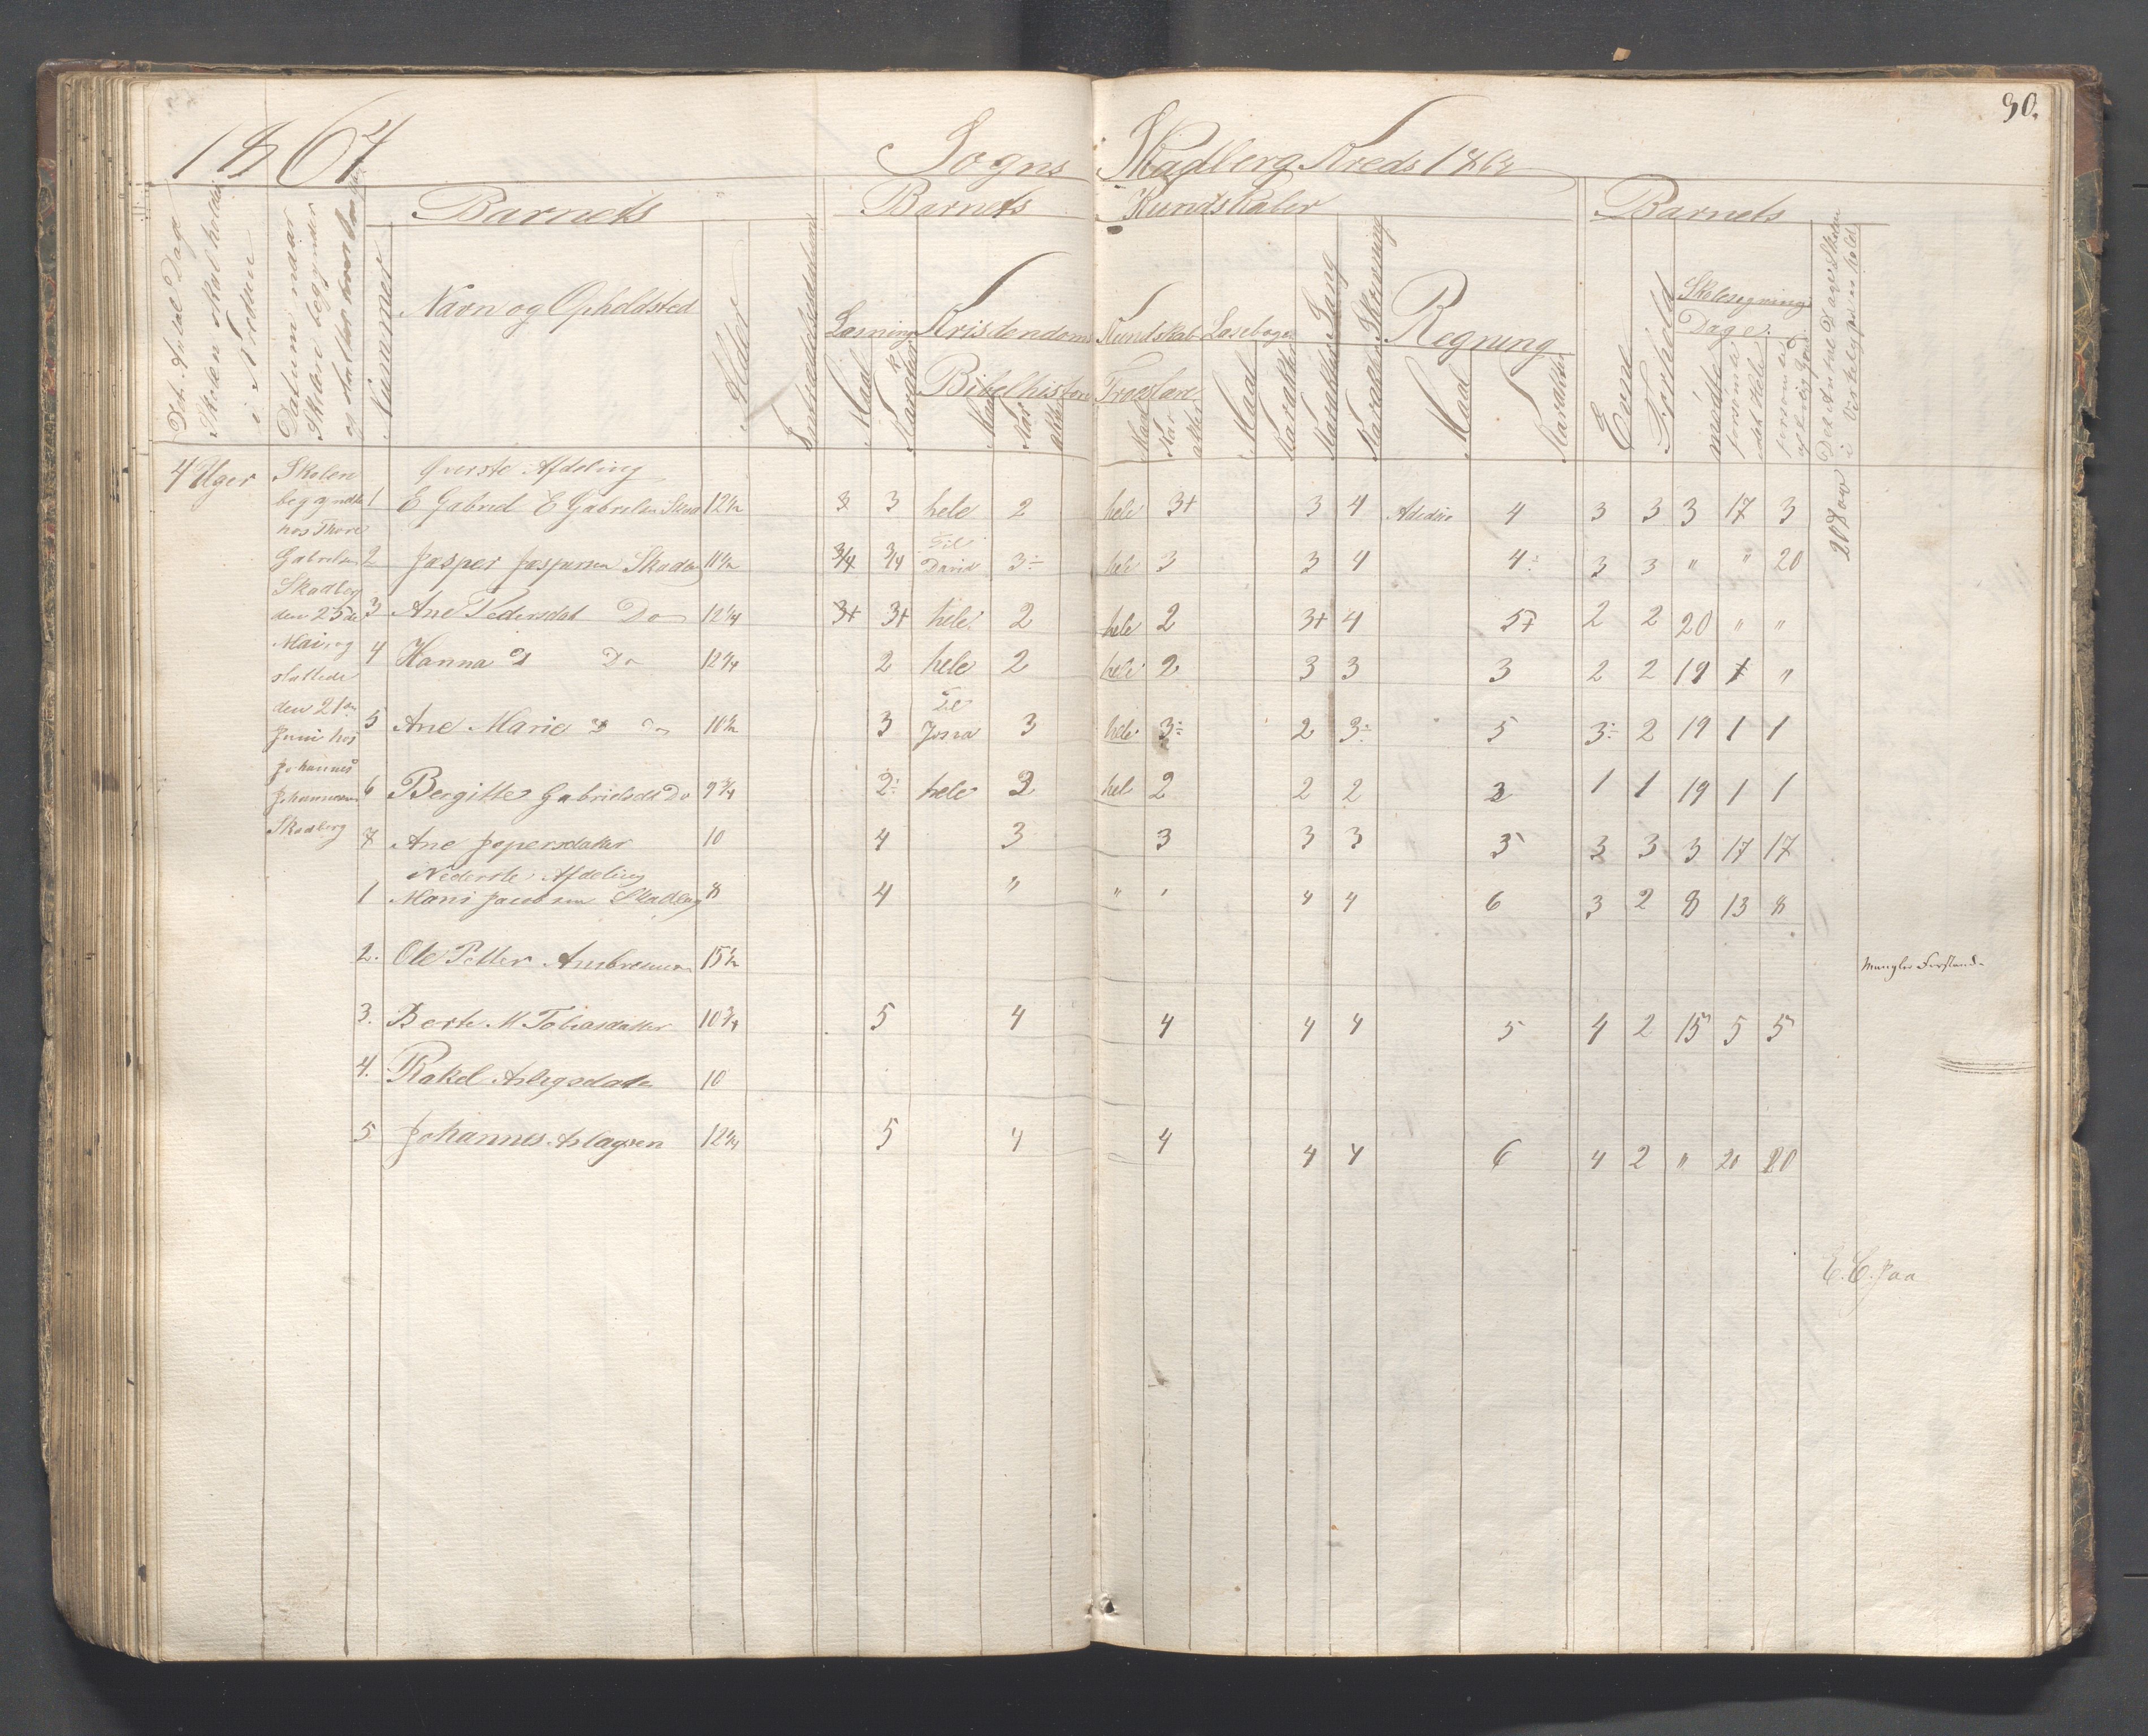 30.
1864 Sogns Skadberg Kreds 1864
Barnets Barnets Kundskaber Barnets
Det Antal Dage Skolen skal holdes i Kredsen
Datum naar Skolen begynder og slutter
Nummer
Navn og Opholdsted
Alder
Indtrædelsesdatum
Læsning Kristendoms Kundskab Læsebogen
Maal Karakter
Bibelhistorie Troeslære
Maal Karakter Maal Karakter
Maal Karakter
Karakter Sang
Karakter Skrivning
Regning
Maal Karakter
Evne
Forhold
Skolesøgning
Dage
mødte
forsømte det Hele
Det Antal Dage Skolen i Virkeligheden er holdt
4 Uger Skolen Øverste Afdeling
begyndte 1 E Gabriel E Gabrielsen Skad 12½ 3 3 hele 2 hele 3+ 3 4 4 3 3 3 17 3 20
hos Thore
Gabrielsen 2 Jasper Jaspersen Skadberg 11½ 3/4 3/4 Til David 3÷ hele 3 3 4 4÷ 3 3 " " 20
Skadberg
den 25de 3 Ane Pedersdat Do 12¼ 3+ 3+ hele 2 hele 2 3+ 4 5+ 2 2 20 " "
Mai og 4 Hanna Do 12¼ 2 hele 2 hele 2 3 3 3 2 2 19 1 "
sluttede
den 21de 5 Ane Marie Do 10½ 3 Til 3 hele 3÷ 2 3÷ 5 3÷ 2 19 1 1
Juni hos
Johannes
Johannesen 6 Bergitte Gabrielsdt Do 9¾ 2÷ hele 2 hele 2 2 2 3 1 1 19 1 1
Skadberg
7 Ane Jspersdatter 10 4 3 3 3 3 5 3 3 3 17 17
Nederste Afdeling
1 Mans Jacobsen Skadberg 8 4 " " 4 4 6 3 2 8 13 8
2. Ole Petter Ambrosiusen 15½ Mangler Forstand
3. Berte M Tobiasdatter 10¾ 5 4 4 4 4 5 4 2 15 5 5
4. Rakel Aslagsdatter 10
5 Johannes Aslagsen 12¼ 5 4 4 4 4 6 4 2 " 20 20
E. C. Jaa